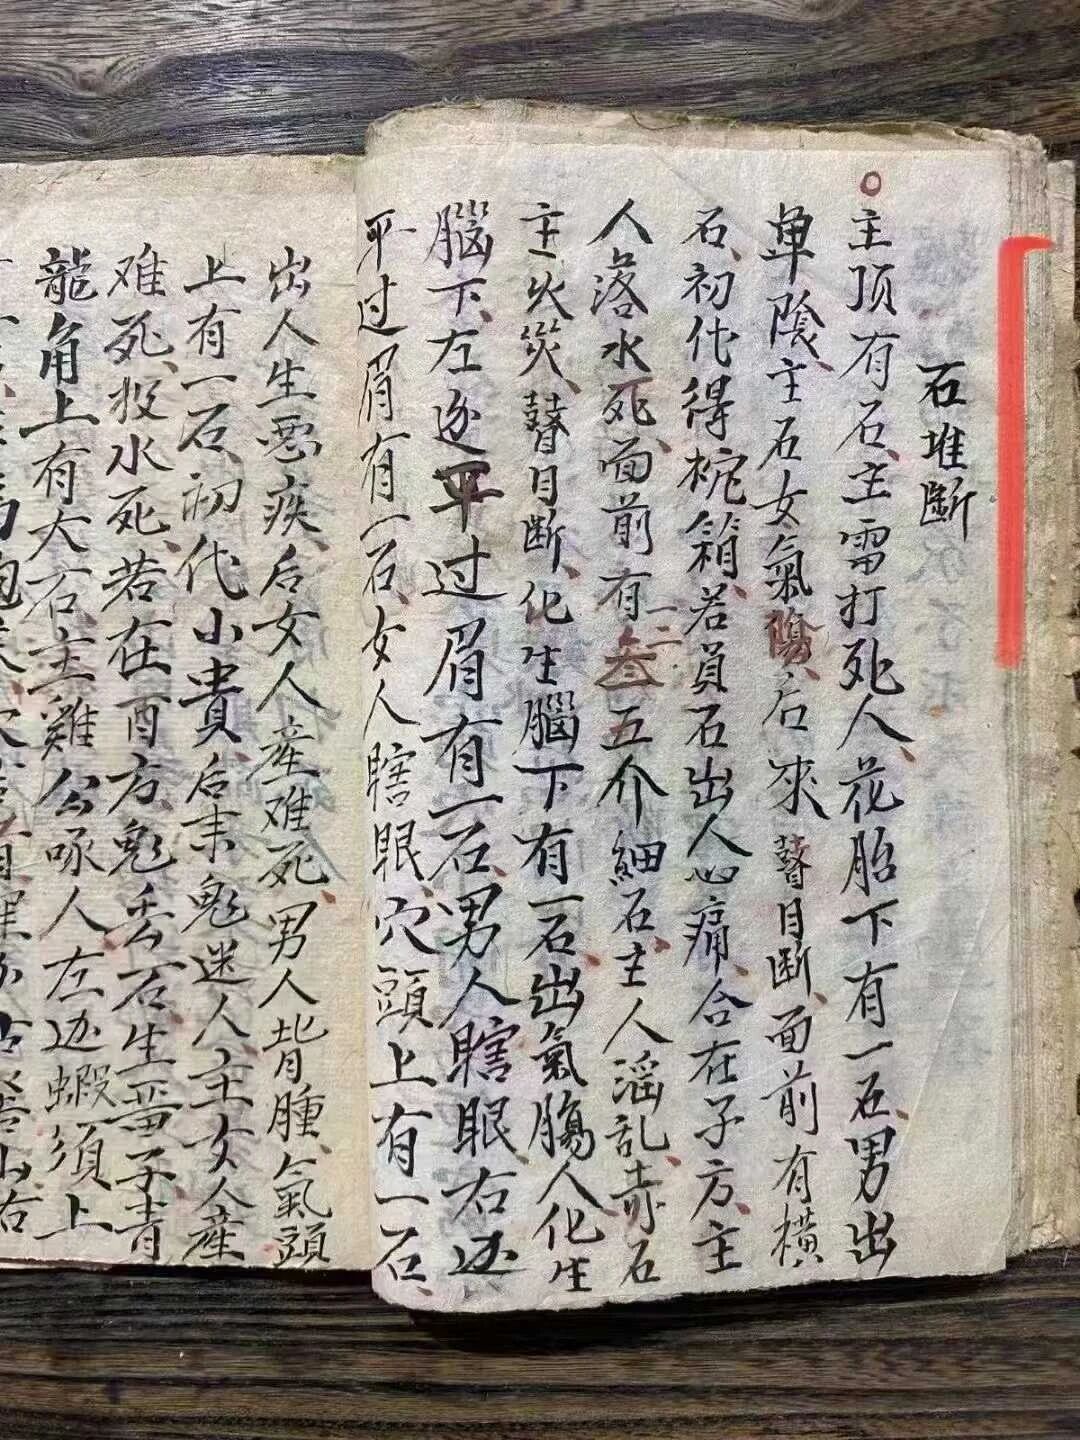 石堆斷
主顶有石、主雷打死人、花胎下有一石、男出
单陰、主石女氣傷、后來瞽目斷、面前有橫
石、初代得椀箱、若員石出人心痛、合在子方、主
人落水死、面前有一二叁五介細石、主人滛乱、赤石
主火災、瞽目斷、化生腦下有一石、出氣膓人化生
腦下、左边平过眉有一石、男人瞎眼右边
平过眉有一石、女人瞎眼、穴頭上有一石、
出人生恶疾、后女人産难死、男人背腫、氣頭
上有一石、初代小貴、后末鬼迷人主女人産
难死、投水死、若在酉方鬼丢石、生
龍角上有大石、主雞公啄人、左边蝦須上